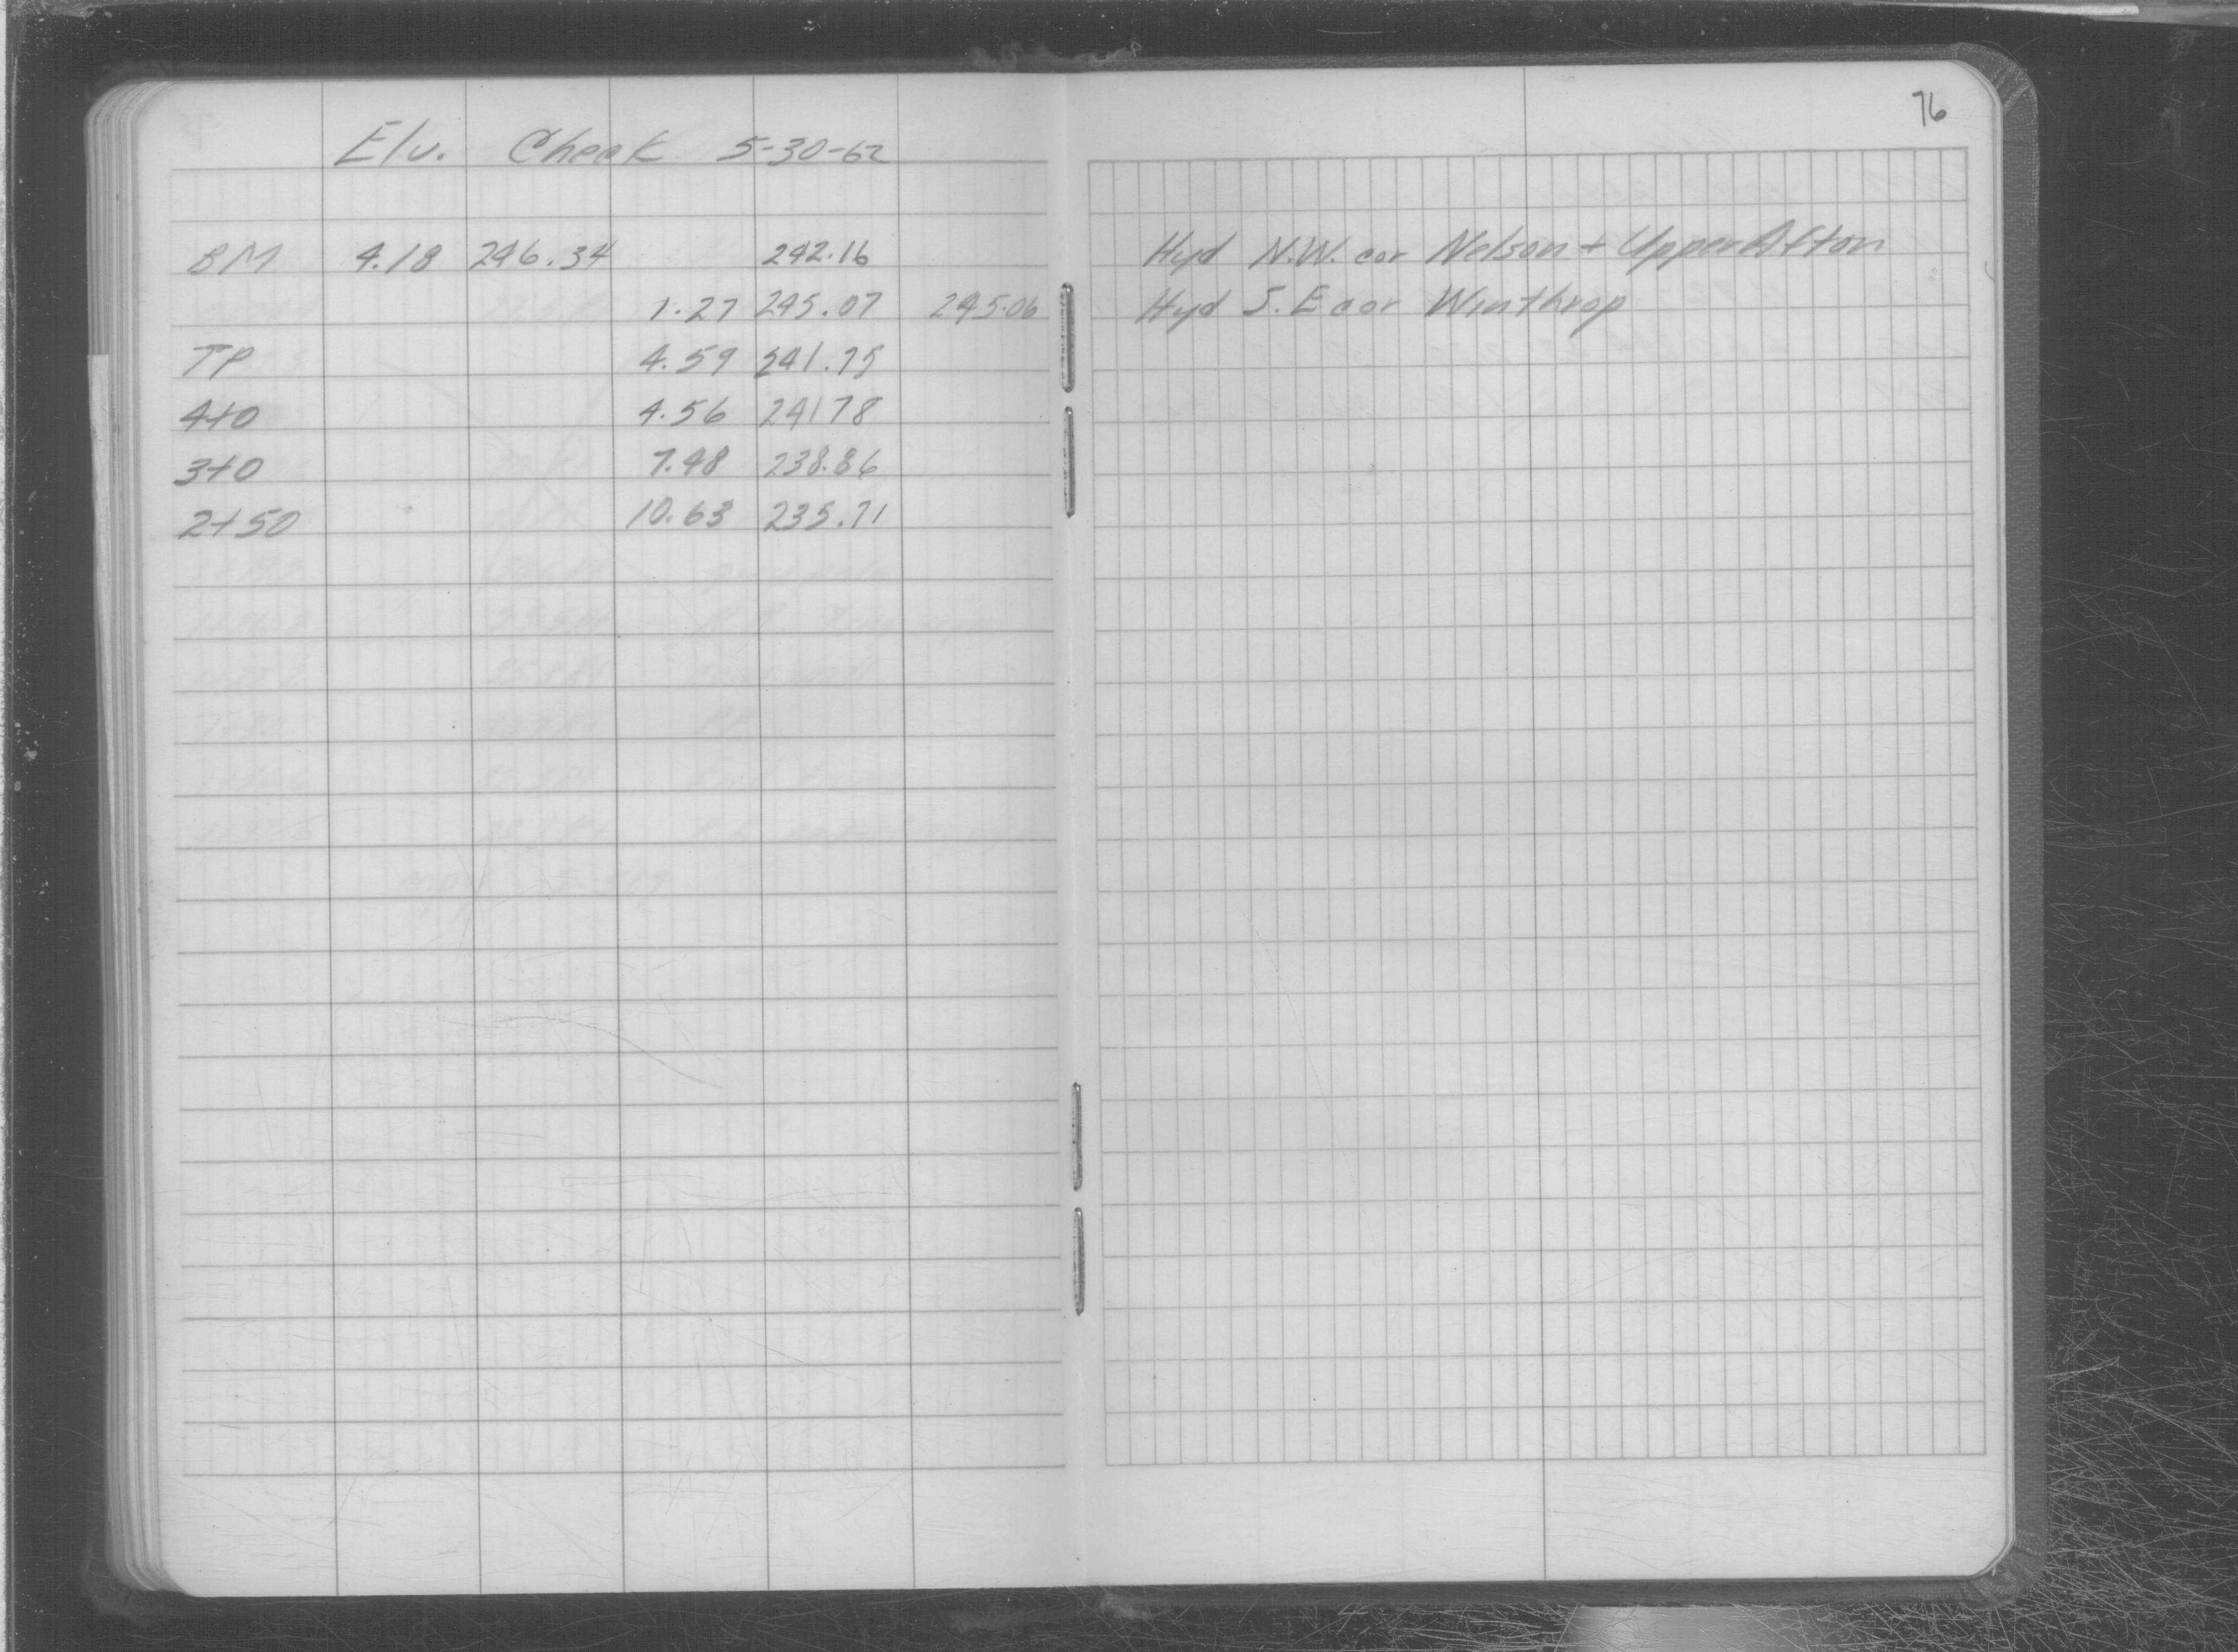 76
Elv. Check 5-30-62
BM 4.18 246.34 242.16 Hyd N.W. cor Nelson + Upper Afton
1.27 245.07 245.06 Hyd S.E cor Winthrop
TP 4.59 241.75
4+0 4.56 24178
3+0 7.48 238.86
2+50 10.63 235.71